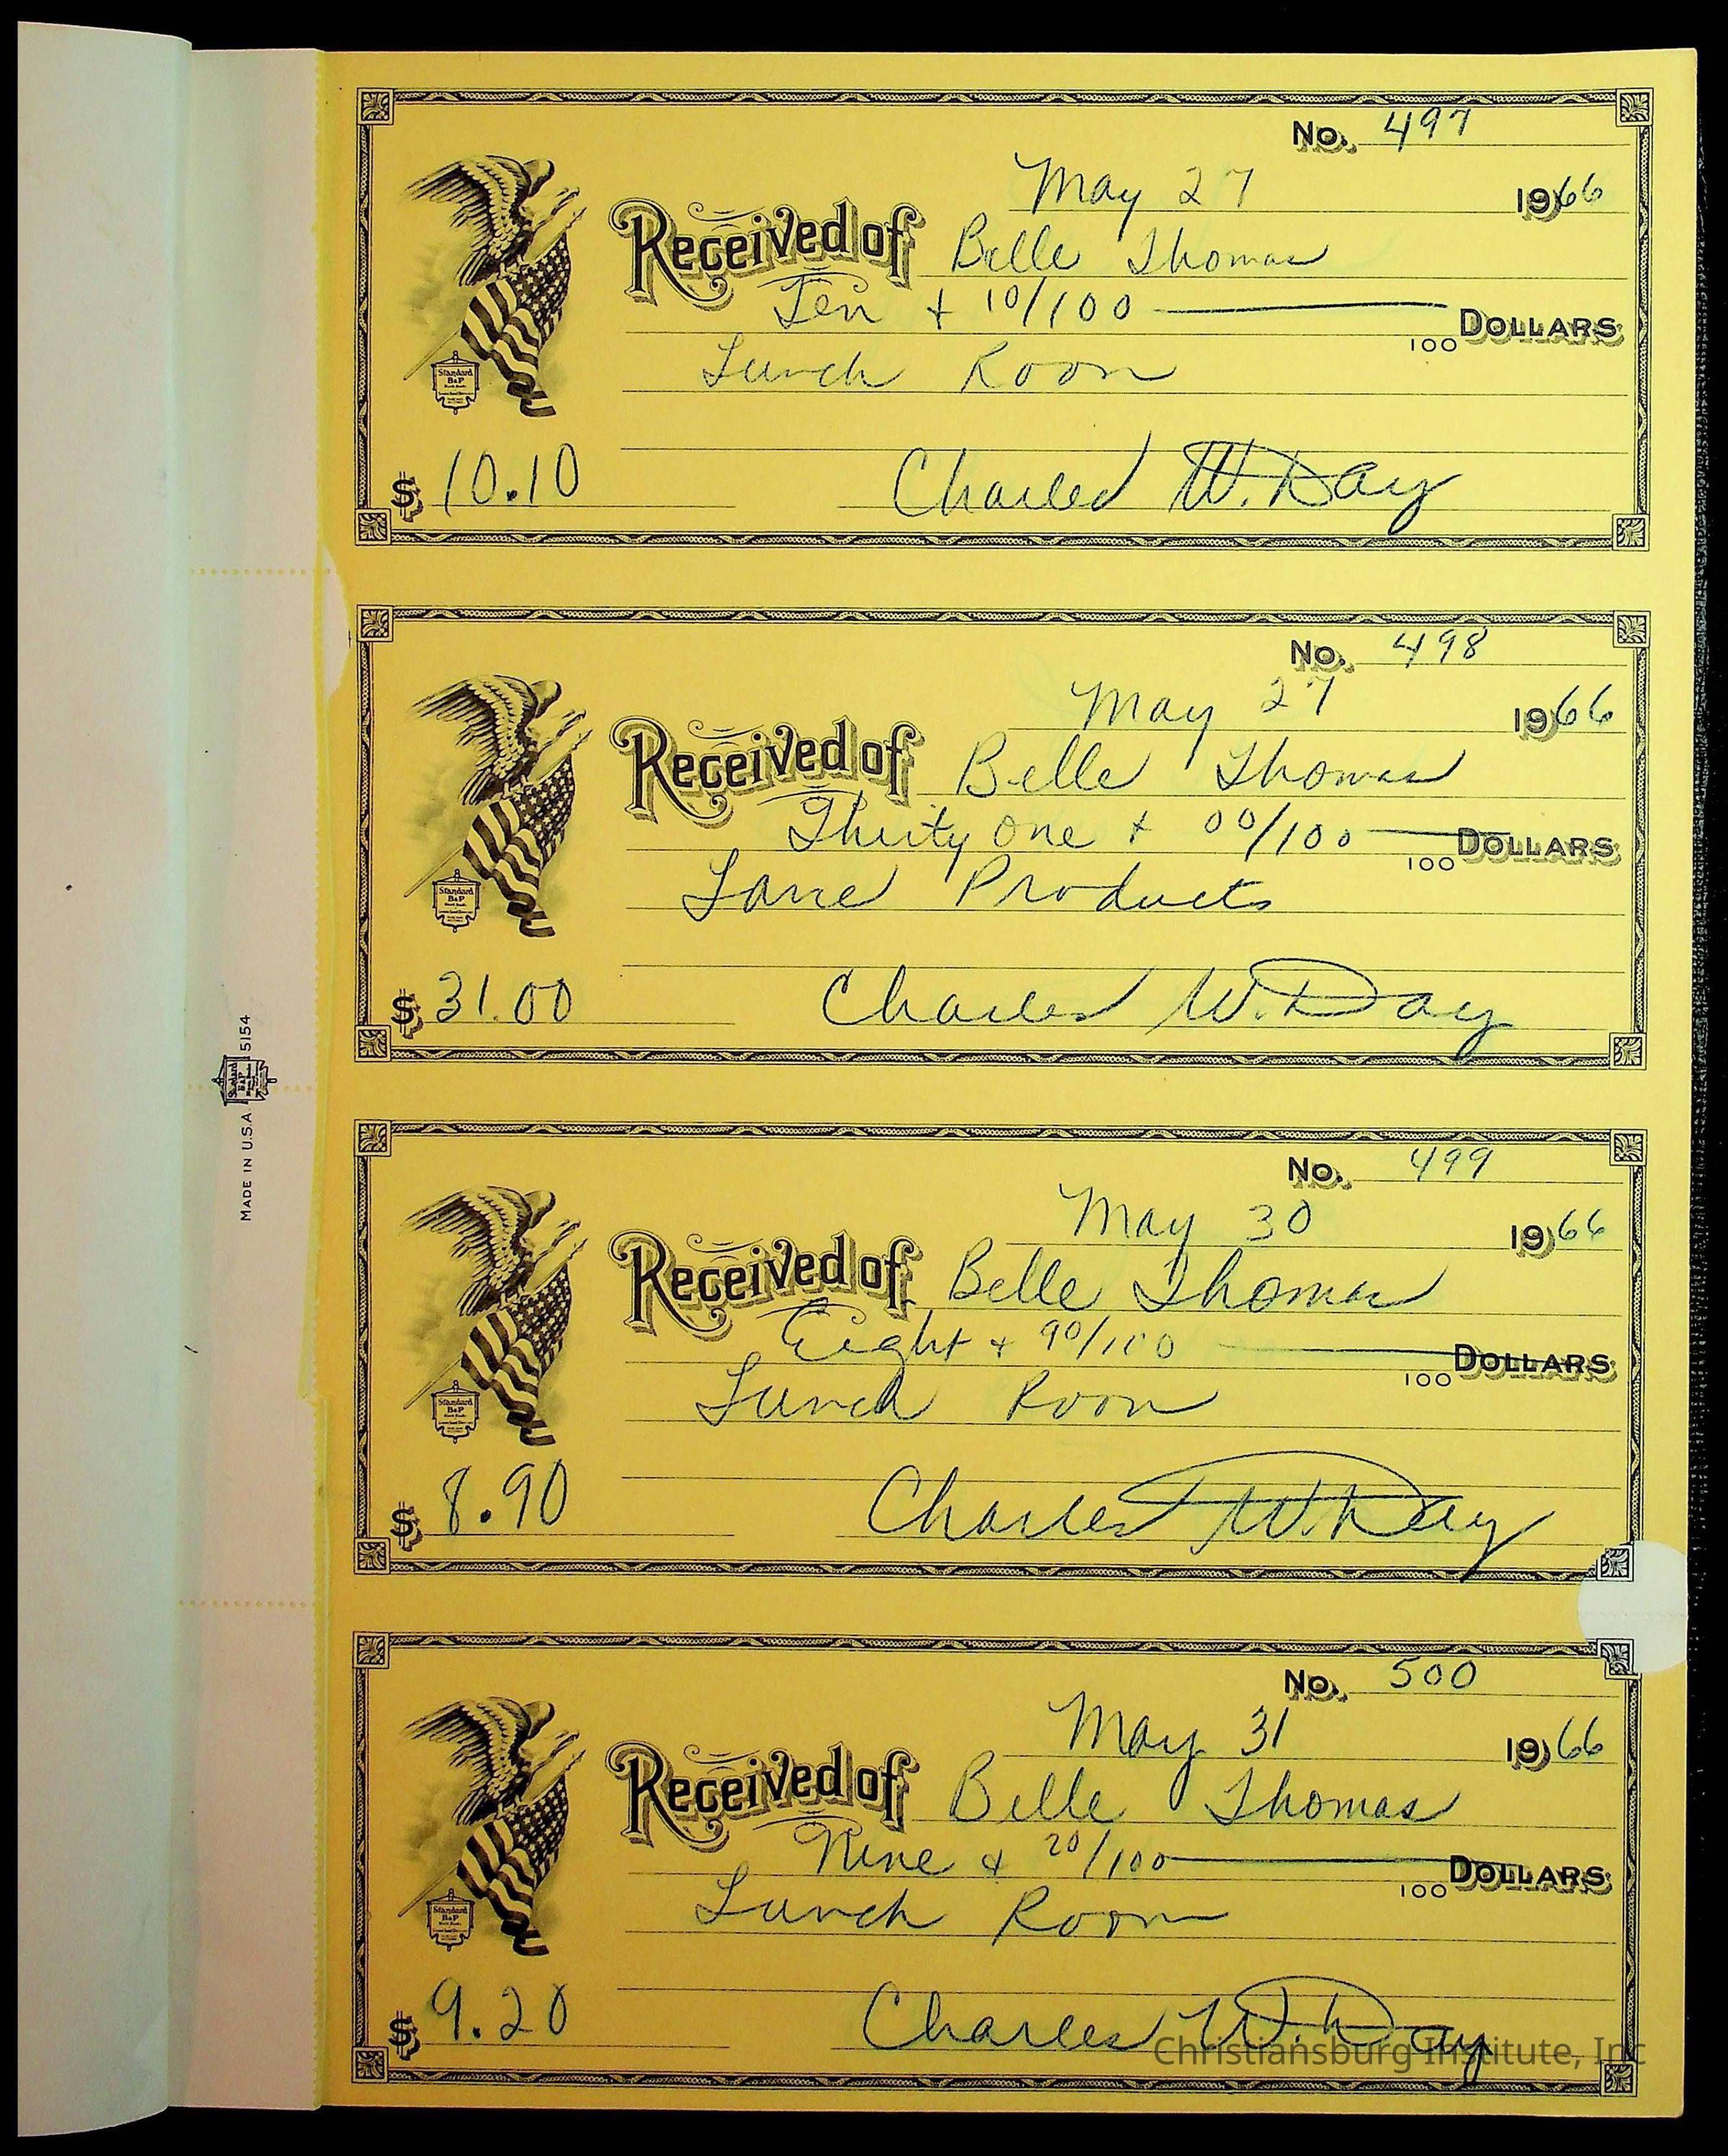 No. 497
May 27 1966
Received of Belle Thomas
Ten + 10/100 100 DOLLARS
Lunch Room
$ 10.10 Charles W. Day
Standard B&P
No. 498
May 27 1966
Received of Belle Thomas
Thirty one + 00/100 100 DOLLARS
Lance Products
$ 31.00 Charles W. Day
Standard B&P
MADE IN U.S.A. Standard B&P 5154
No. 499
May 30 1966
Received of Belle Thomas
Eight + 90/100 100 DOLLARS
Lunch Room
$ 8.90 Charles W. Day
Standard B&P
No. 500
May 31 1966
Received of Belle Thomas
Nine + 20/100 100 DOLLARS
Lunch Room
$ 9.20 Charles W. Day
Standard B&P
Christiansburg Institute, Inc